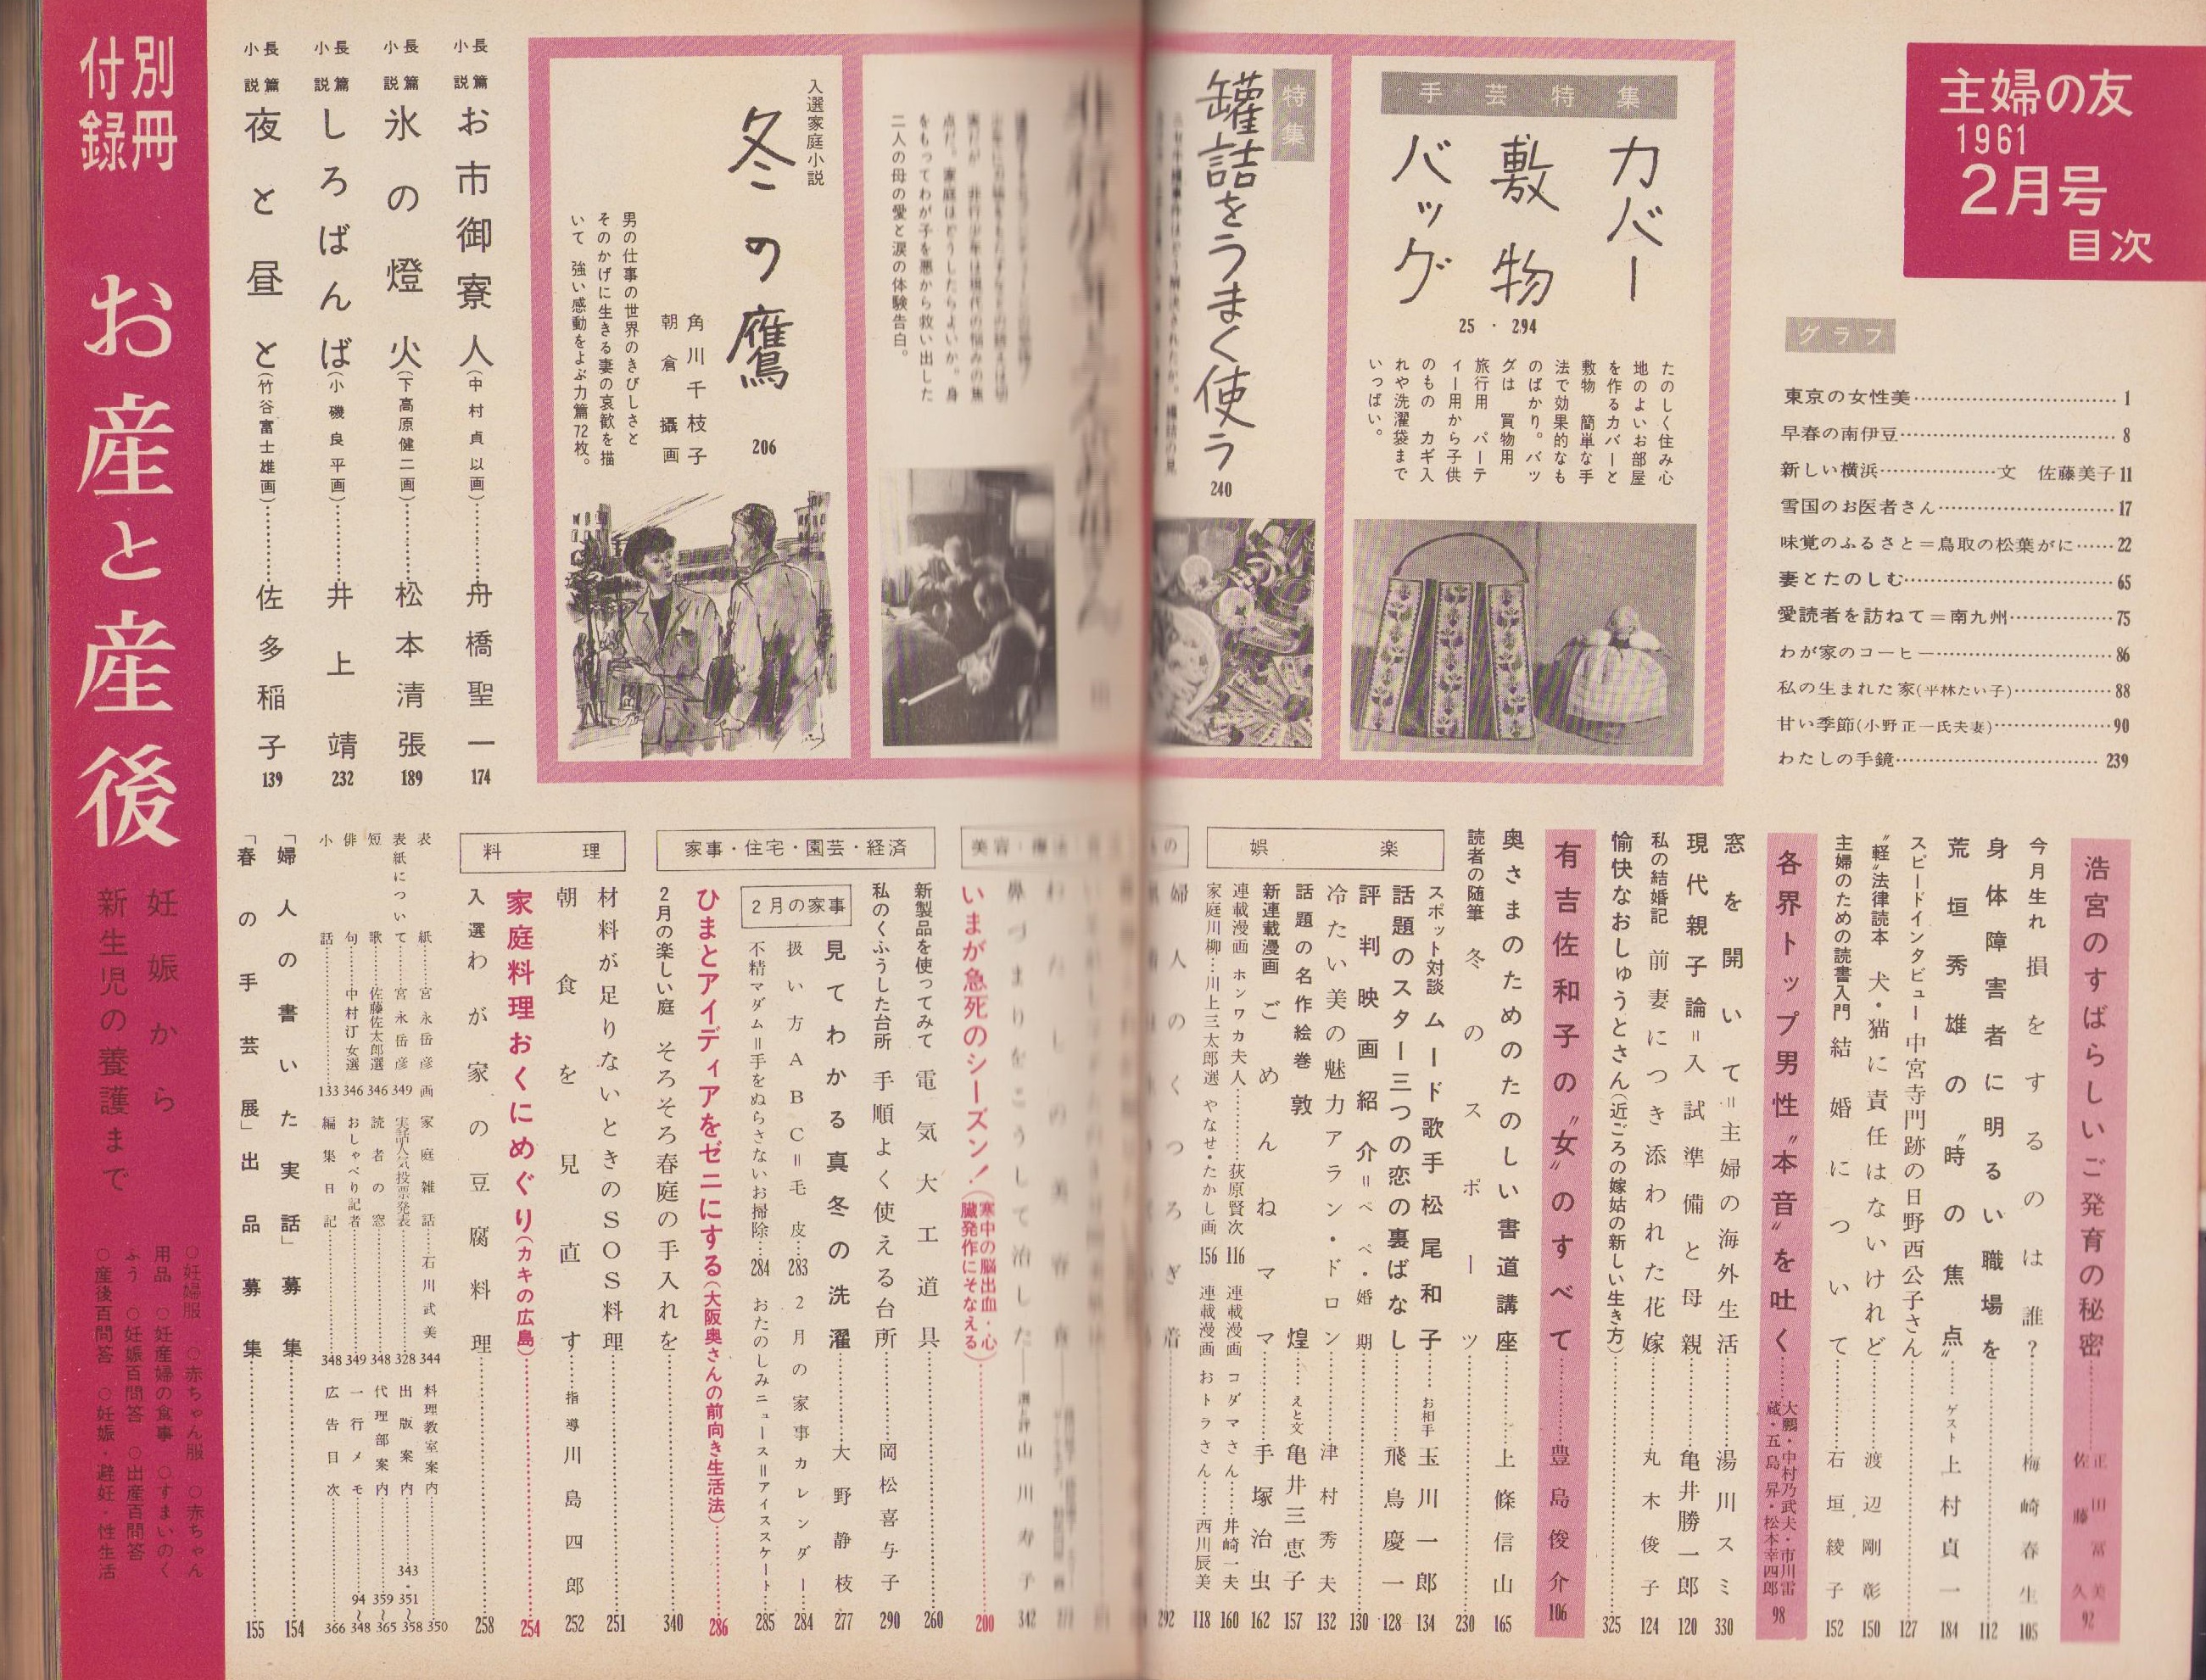 主婦の友
1961
2月号
目次
グラフ
東京の女性美 1
早春の南伊豆 8
新しい横浜 文 佐藤美子 11
雪国のお医者さん 17
味覚のふるさと＝鳥取の松葉がに 22
妻とたのしむ 65
愛読者を訪ねて＝南九州 75
わが家のコーヒー 86
私の生まれた家(平林たい子) 88
甘い季節(小野正一氏夫妻) 90
わたしの手鏡 239
手芸特集
カバー
敷物
バッグ
25・294
たのしく住み心
地のよいお部屋
を作るカバーと
敷物 簡単な手
法で効果的なも
のばかり。バッ
グは 買物用
旅行用 パーテ
ィー用から子供
のもの カギ入
れや洗濯袋まで
いっぱい。
特集
罐詰をうまく使う
240
をもってわが子を悪から救い出した
二人の母の愛と涙の体験告白。
入選家庭小説
冬の鷹
206
角川千枝子
朝倉 攝画
男の仕事の世界のきびしさと
そのかげに生きる妻の哀歓を描
いて 強い感動をよぶ力篇72枚。
長篇小説 お市御寮人(中村貞以画) 舟橋聖一 174
長篇小説 氷の燈火(下高原健二画) 松本清張 189
長篇小説 しろばんば(小磯良平画) 井上靖 232
長篇小説 夜と昼と(竹谷富士雄画) 佐多稲子 139
浩宮のすばらしいご発育の秘密 正田冨美 佐藤久 92
今月生れ損をするのは誰？ 梅崎春生 105
身体障害者に明るい職場を 112
荒垣秀雄の“時の焦点” ゲスト 上村貞一 184
スピードインタビュー 中宮寺門跡の日野西公子さん 127
“軽”法律読本 犬・猫に責任はないけれど 渡辺剛彰 150
主婦のための読書入門 結婚について 石垣綾子 152
各界トップ男性“本音”を吐く 大鵬・中村乃武夫・市川雷蔵・五島昇・松本幸四郎 98
窓を開いて＝主婦の海外生活 湯川スミ 330
現代親子論＝入試準備と母親 亀井勝一郎 120
私の結婚記 前妻につき添われた花嫁 丸木俊子 124
愉快なおしゅうとさん(近ごろの嫁姑の新しい生き方) 325
有吉佐和子の“女”のすべて 豊島俊介 106
奥さまのためのたのしい書道講座 上條信山 165
読者の随筆 冬のスポーツ 230
娯楽
スポット対談 ムード歌手松尾和子 お相手 玉川一郎 134
話題のスター三つの恋の裏ばなし 飛鳥慶一 128
評判映画紹介＝ペペ・婚期 130
冷たい美の魅力アラン・ドロン 津村秀夫 132
話題の名作絵巻 敦煌 えと文 亀井三恵子 157
新連載漫画 ごめんねママ 手塚治虫 162
連載漫画 ホンワカ夫人 荻原賢次 116
連載漫画 コダマさん 井崎一夫 160
家庭川柳 川上三太郎選 やなせ・たかし画 156
連載漫画 おトラさん 西川辰美 118
婦人のくつろぎ着 292
鼻づまりをこうして治した 山川寿子 342
いまが急死のシーズン！(寒中の脳出血・心臓発作にそなえる) 200
家事・住宅・園芸・経済
新製品を使ってみて 電気大工道具 260
私のくふうした台所 手順よく使える台所 岡松喜与子 290
2月の家事
見てわかる真冬の洗濯 大野静枝 277
扱い方ABC＝毛皮 283
2月の家事カレンダー 284
不精マダム＝手をぬらさないお掃除 284
おたのしみニュース＝アイススケート 285
ひまとアイディアをゼニにする(大阪奥さんの前向き生活法) 286
2月の楽しい庭 そろそろ春庭の手入れを 340
料理
材料が足りないときのSOS料理 251
朝食を見直す 指導 川島四郎 252
家庭料理おくにめぐり(カキの広島) 254
入選わが家の豆腐料理 258
表紙 宮永岳彦画
表紙について 宮永岳彦 349
短歌 佐藤佐太郎選 346
俳句 中村汀女選 346
小話 133
家庭雑話 石川武美 344
実話人気投票発表 328
読者の窓 348
おしゃべり記者 349
編集日記 348
料理教室案内 350
出版案内 343・351〜358
代理部案内 359〜365
一行メモ 94〜348
広告目次 366
「婦人の書いた実話」募集 154
「春の手芸展」出品募集 155
別冊付録
お産と産後
妊娠から
新生児の養護まで
○妊婦服 ○赤ちゃん服 ○赤ちゃん
用品 ○妊産婦の食事 ○すまいのく
ふう ○妊娠百問答 ○出産百問答
○産後百問答 ○妊娠・避妊・性生活